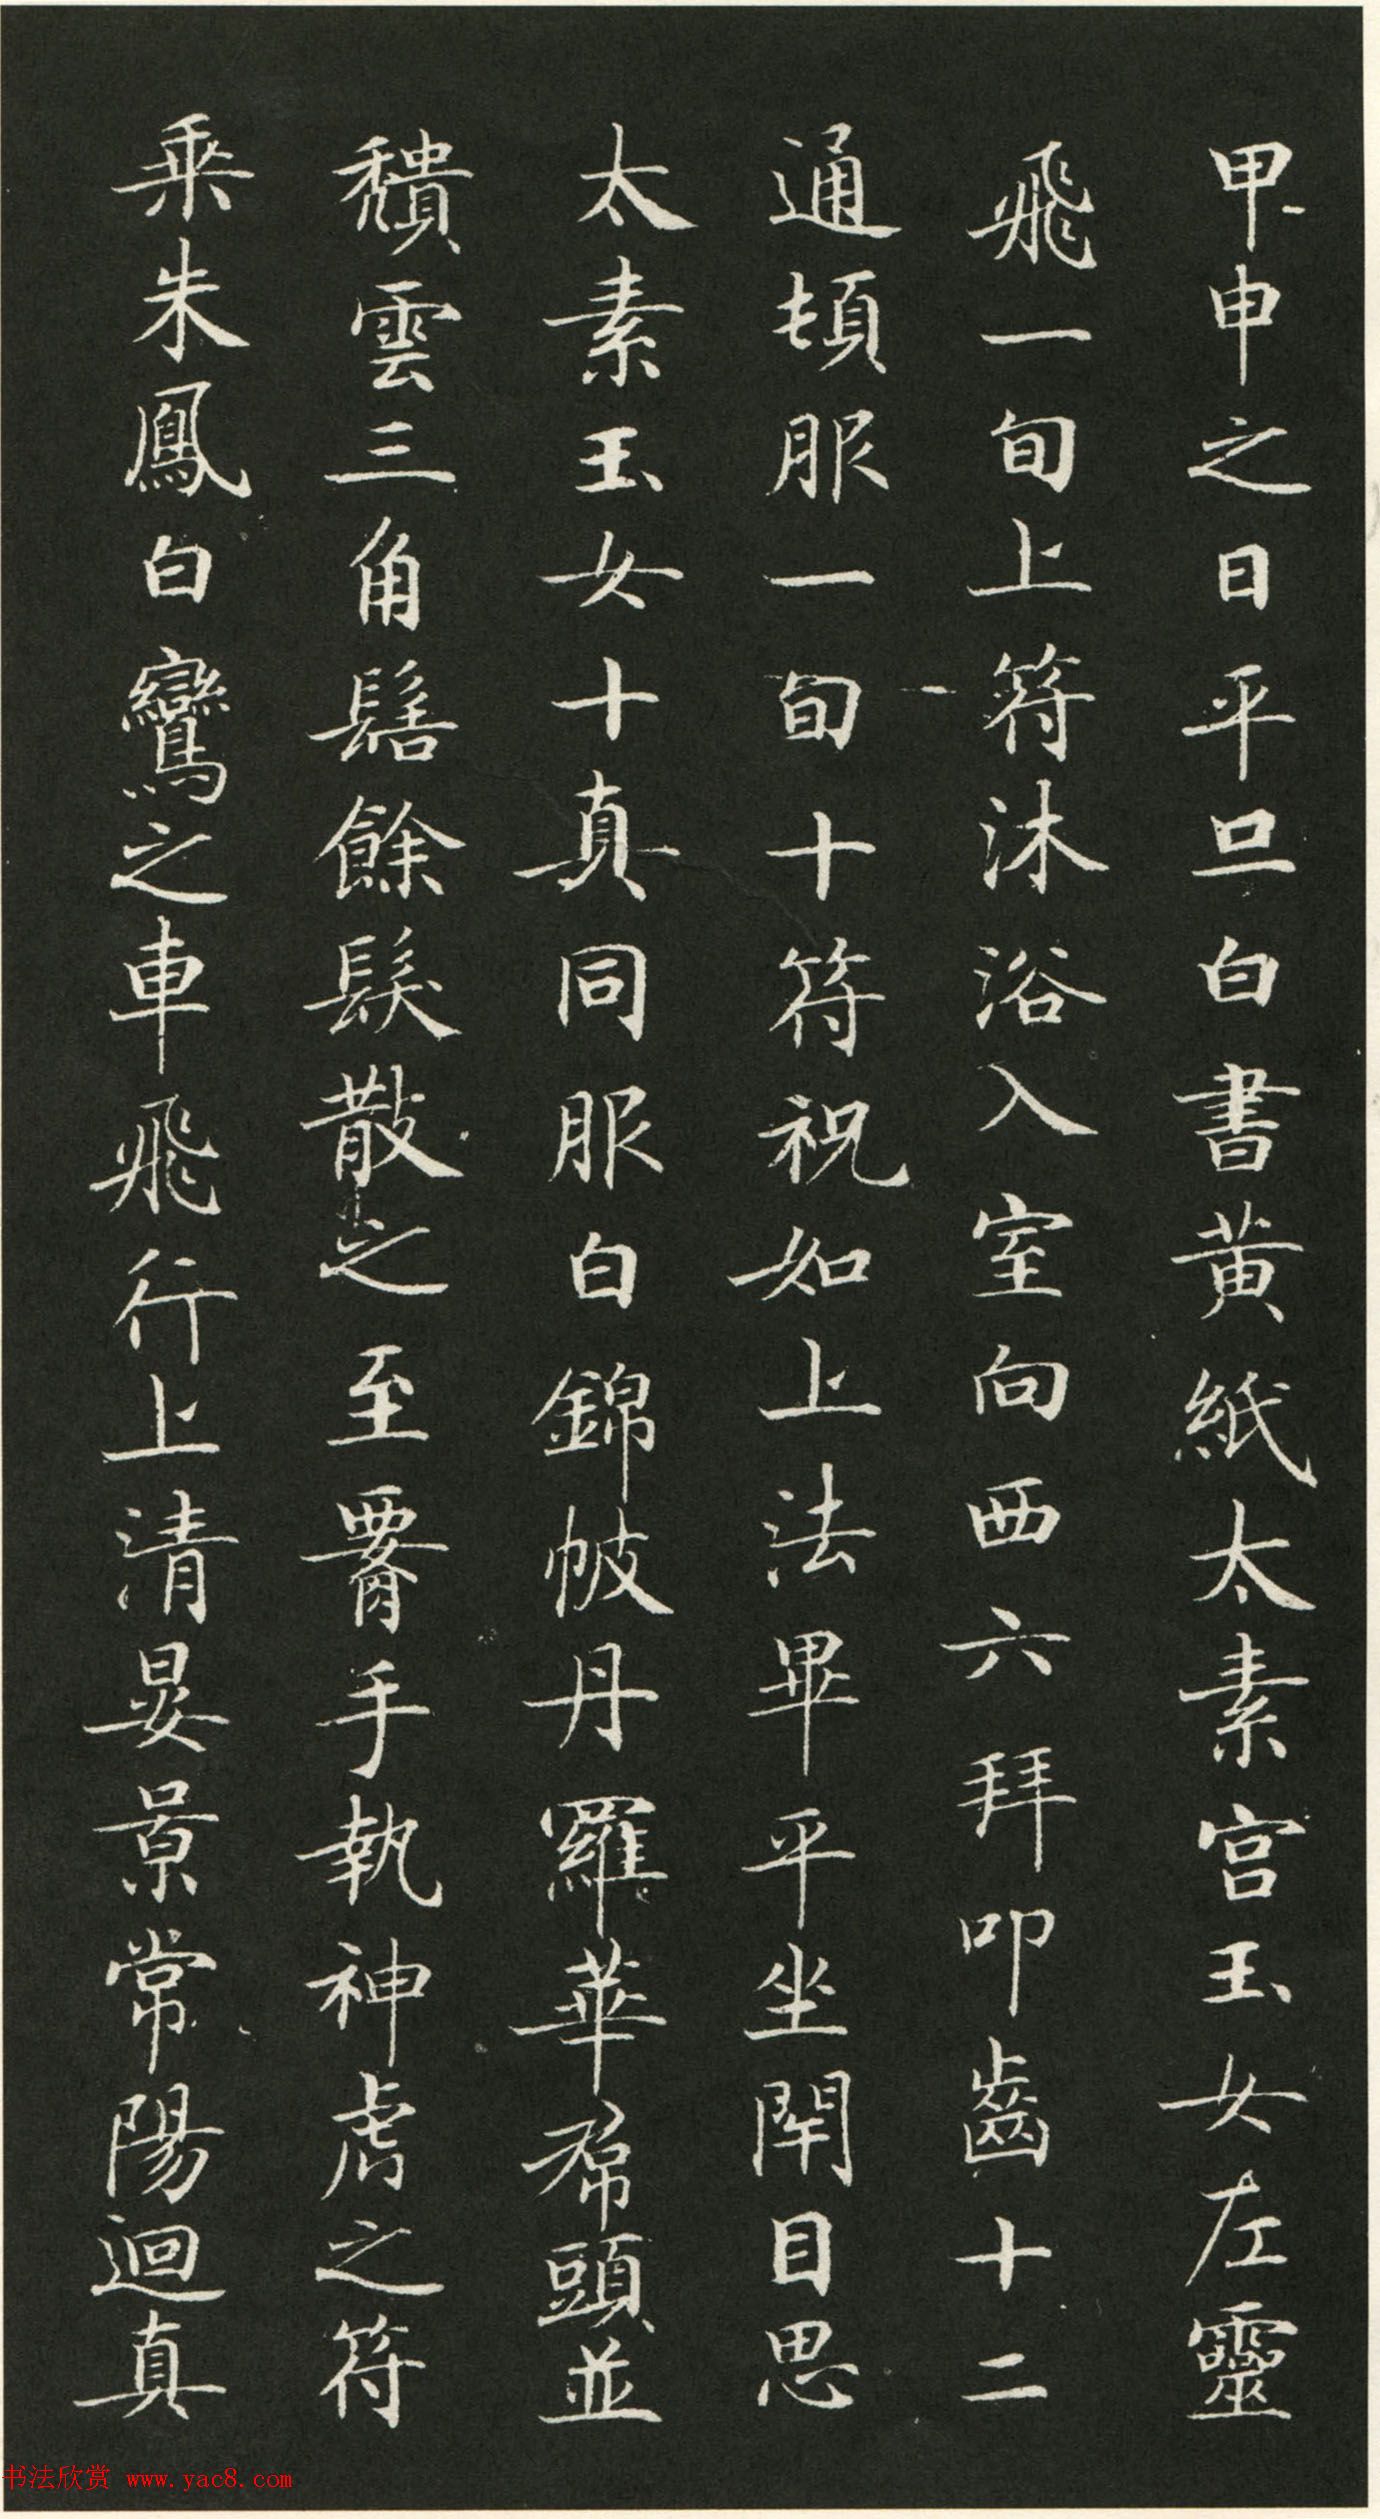 甲申之日平旦白書黃紙太素宮玉女左靈
飛一旬上符沐浴入室向西六拜叩齒十二
通頓服一旬十符祝如上法畢平坐閉目思
太素玉女十真同服白錦帔丹羅華帬頭並
頽雲三角髻餘髮散之至署手執神虎之符
乗朱鳳白鸞之車飛行上清晏景常陽迴真
书法欣赏 www.yac8.com